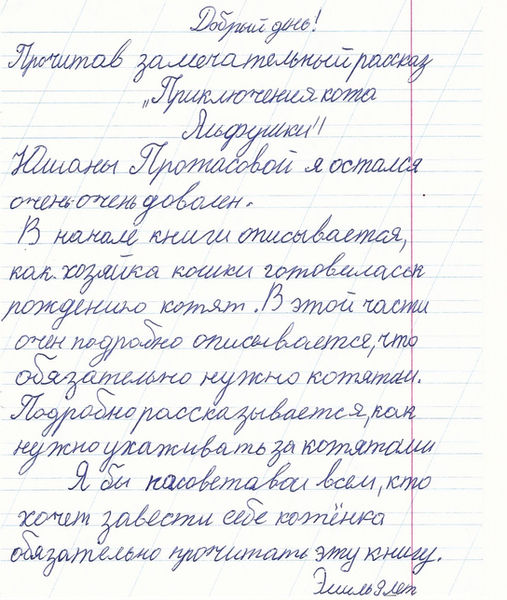 Добрый день!
Прочитав замечательный рассказ
„Приключения кота
Альфрушки"
Юлианы Протасовой я остался
очень-очень доволен.
В начале книги описывается,
как хозяйка кошки готовилась к
рождению котят. В этой части
очен подробно описывается, что
обязательно нужно котятам.
Подробно рассказывается, как
нужно ухаживать за котятами
Я бы посоветовал всем, кто
хочет завести себе котёнка
обязательно прочитать эту книгу.
Эмиль 9 лет